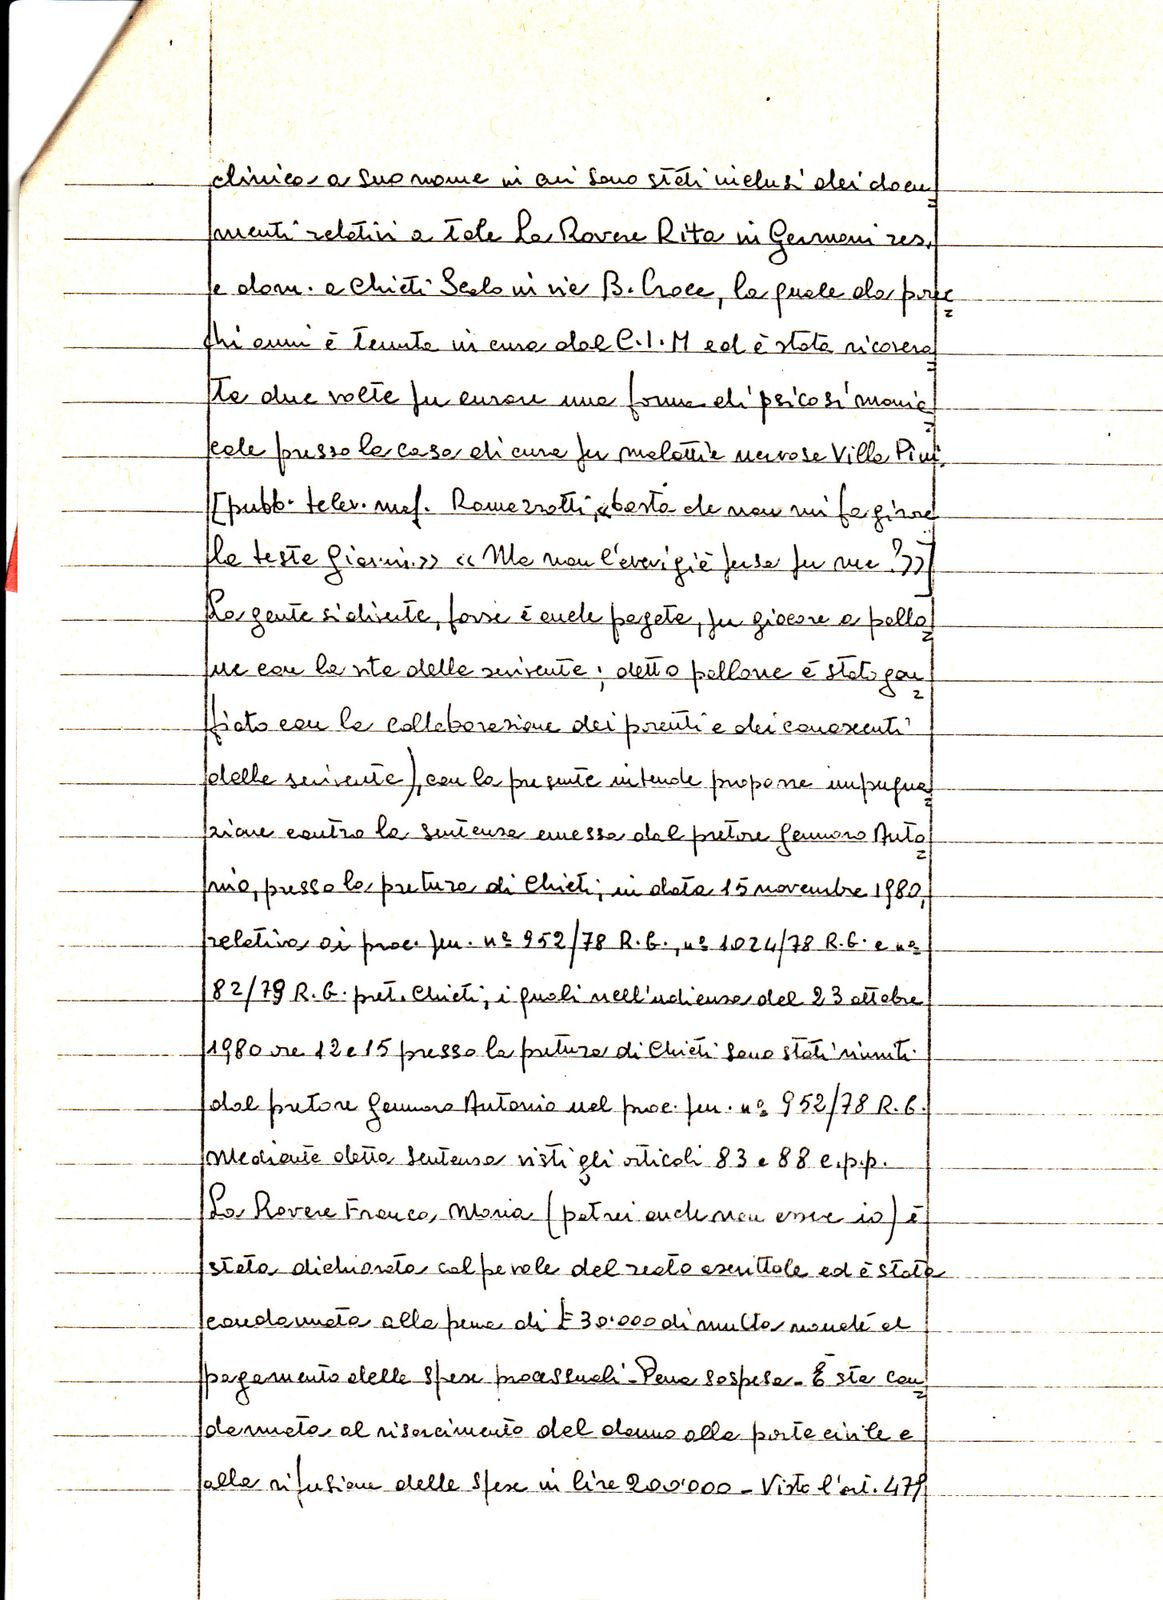 clinico a suo nome in cui sono stati inclusi dei docu=
menti relativi a tale La Rovere Rita in Germani res.
e dom. a Chieti Scalo in via B. Croce, la quale da parec=
chi anni è tenuta in cura dal C.I.M ed è stata ricovera=
ta due volte per curare una forma di psicosi mania=
cale presso la casa di cura per malattie nervose Villa Pini.
[pubb. telev. maf. Ramazzotti, «basta che non mi fa girare
la testa Gianni.» «Ma non l'avevi già persa per me?»]
La gente si diverte, forse è anche pagata, per giocare a pallo=
ne con la vita della scrivente; detto pallone è stato gon=
fiato con la collaborazione dei parenti e dei conoscenti
della scrivente), con la presente intende proporre impugna=
zione contro la sentenza emessa dal pretore Gennaro Anto=
nio, presso la pretura di Chieti, in data 15 novembre 1980,
relativa ai proc. pen. nº 952/78 R.G., nº 1024/78 R.G. e nº
82/79 R.G. pret. Chieti, i quali nell'udienza del 23 ottobre
1980 ore 12 e 15 presso la pretura di Chieti sono stati riuniti
dal pretore Gennaro Antonio nel proc. pen. nº 952/78 R.G.
Mediante detta sentenza visti gli articoli 83 e 88 c.p.p.
La Rovere Franca Maria (potrei anche non essere io) è
stata dichiarata colpevole del reato ascrittole ed è stata
condannata alla pena di £ 30.000 di multa nonché al
pagamento delle spese processuali - Pena sospesa - È sta con=
dannata al risarcimento del danno alla parte civile e
alla rifusione delle spese in lire 200.000 - Visto l'art. 479